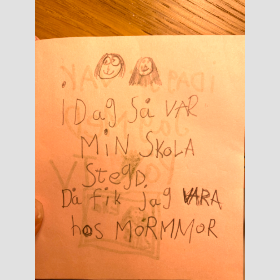 I Dag Så VAR
MIN SKOLA
StEgD.
Då fik jag VARA
hos MORMMOR